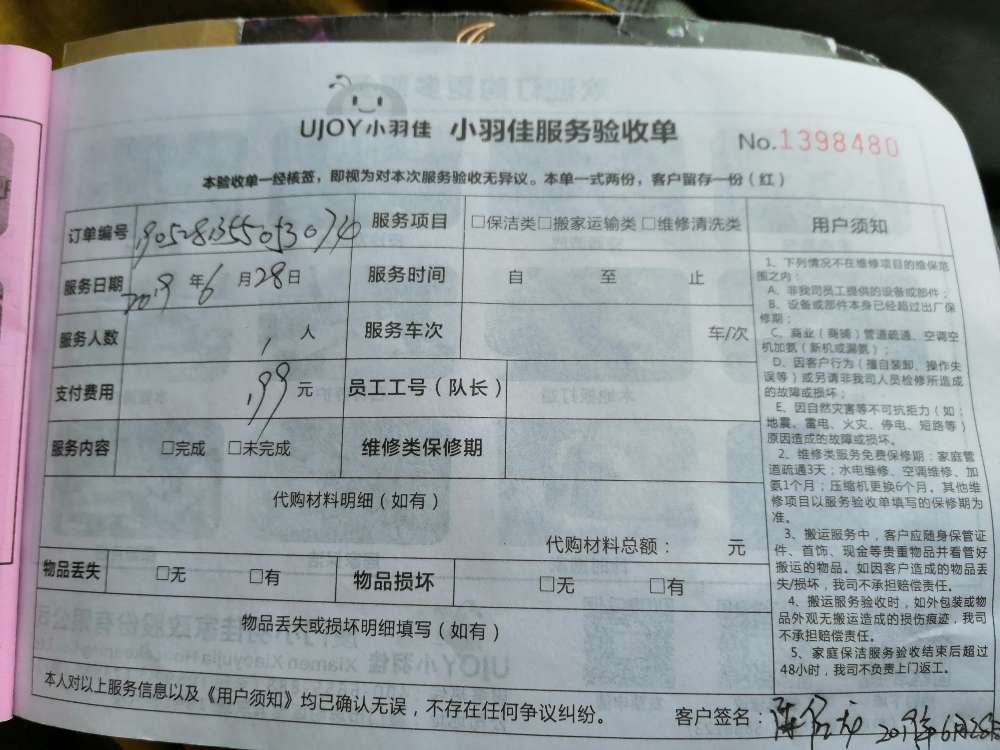 UJOY小羽佳 小羽佳服务验收单
No.1398480
本验收单一经核签，即视为对本次服务验收无异议。本单一式两份，客户留存一份（红）
订单编号 190528135505 服务项目 □保洁类□搬家运输类□维修清洗类
服务日期 2019年6月28日 服务时间 自 至 止
服务人数 1 人 服务车次 车/次
支付费用 199 元 员工工号（队长）
服务内容 □完成 □未完成 维修类保修期
代购材料明细（如有）
代购材料总额： 元
物品丢失 □无 □有 物品损坏 □无 □有
物品丢失或损坏明细填写（如有）
用户须知
1、下列情况不在维修项目的维保范
围之内：
A、非我司员工提供的设备或部件；
B、设备或部件本身已经超过出厂保
修期；
C、商业（商铺）管道疏通、空调空
机加氨（新机或漏氨）；
D、因客户行为（擅自装卸、操作失
误等）或另请非我司人员检修所造成
的故障或损坏；
E、因自然灾害等不可抗拒力（如：
地震、雷电、火灾、停电、短路等）
原因造成的故障或损坏。
2、维修类服务免费保修期：家庭管
道疏通3天；水电维修、空调维修、加
氨1个月；压缩机更换6个月。其他维
修项目以服务验收单填写的保修期为
准。
3、搬运服务中，客户应随身保管证
件、首饰、现金等贵重物品并看管好
搬运的物品。如因客户造成的物品丢
失/损坏，我司不承担赔偿责任。
4、搬运服务验收时，如外包装或物
品外观无搬运造成的损伤痕迹，我司
不承担赔偿责任。
5、家庭保洁服务验收结束后超过
48小时，我司不负责上门返工。
本人对以上服务信息以及《用户须知》均已确认无误，不存在任何争议纠纷。
客户签名：陈 2019年6月28日